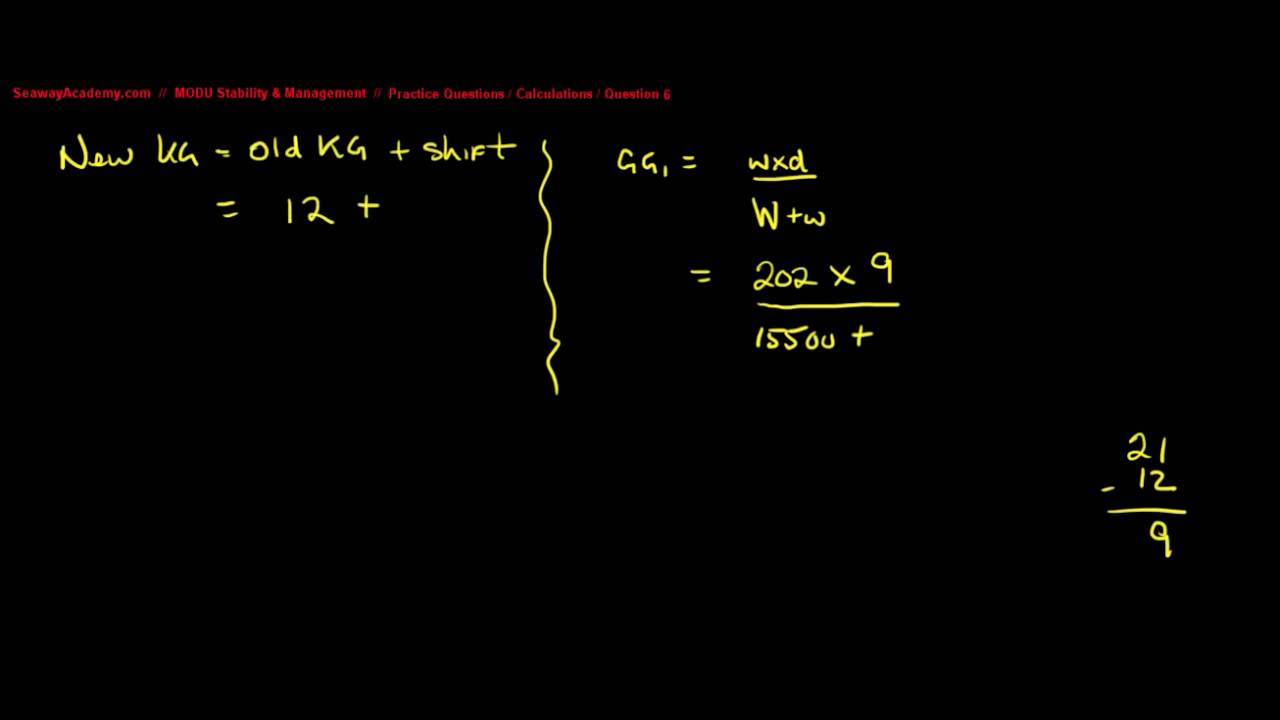 SeawayAcademy.com // MODU Stability & Management // Practice Questions / Calculations / Question 6
New KG = Old KG + shift
= 12 +
GG₁ = wxd
W+w
= 202 x 9
15500 +
21
- 12
9